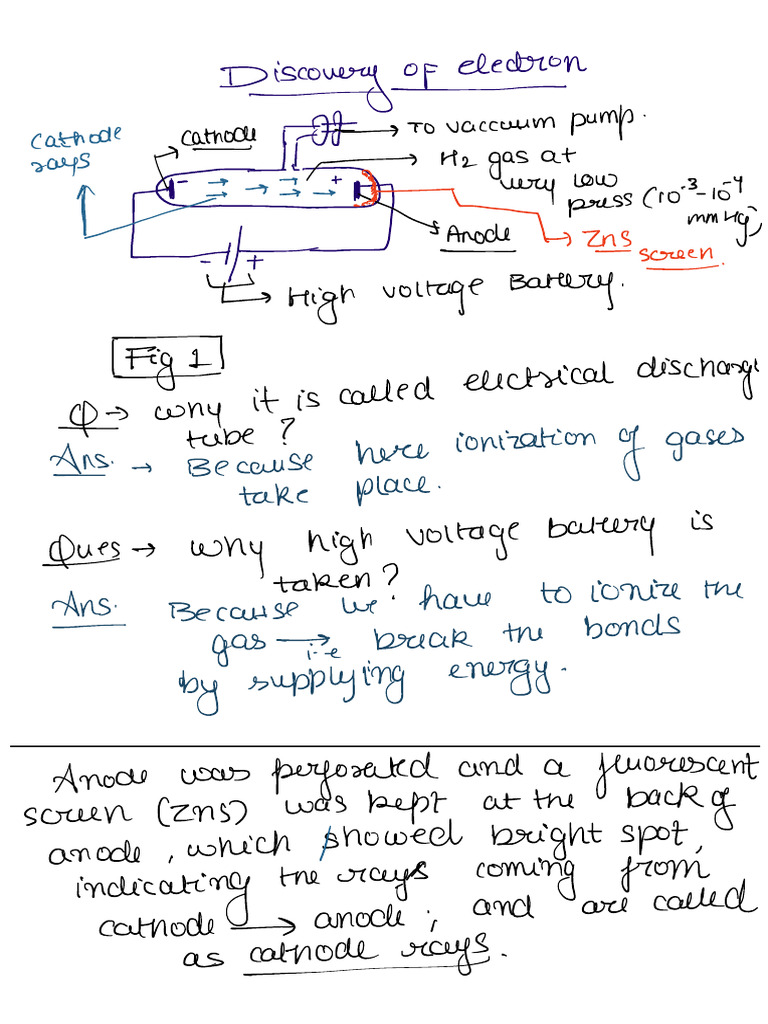 Discovery of electron
Cathode
rays
Cathode
→ To vaccuum pump.
→ H2 gas at
very low
press (10-3-10-4
mmHg)
- +
→ Anode
→ Zns
screen.
- +
→ High voltage Battery.
Fig 1
Q → why it is called electrical discharge
tube?
Ans. → Because here ionization of gases
take place.
Ques → why high voltage battery is
taken?
Ans. Because we have to ionize the
gas → i.e break the bonds
by supplying energy.
Anode was perforated and a fluorescent
screen (Zns) was kept at the back of
anode, which showed bright spot,
indicating the rays coming from
cathode → anode; and are called
as cathode rays.